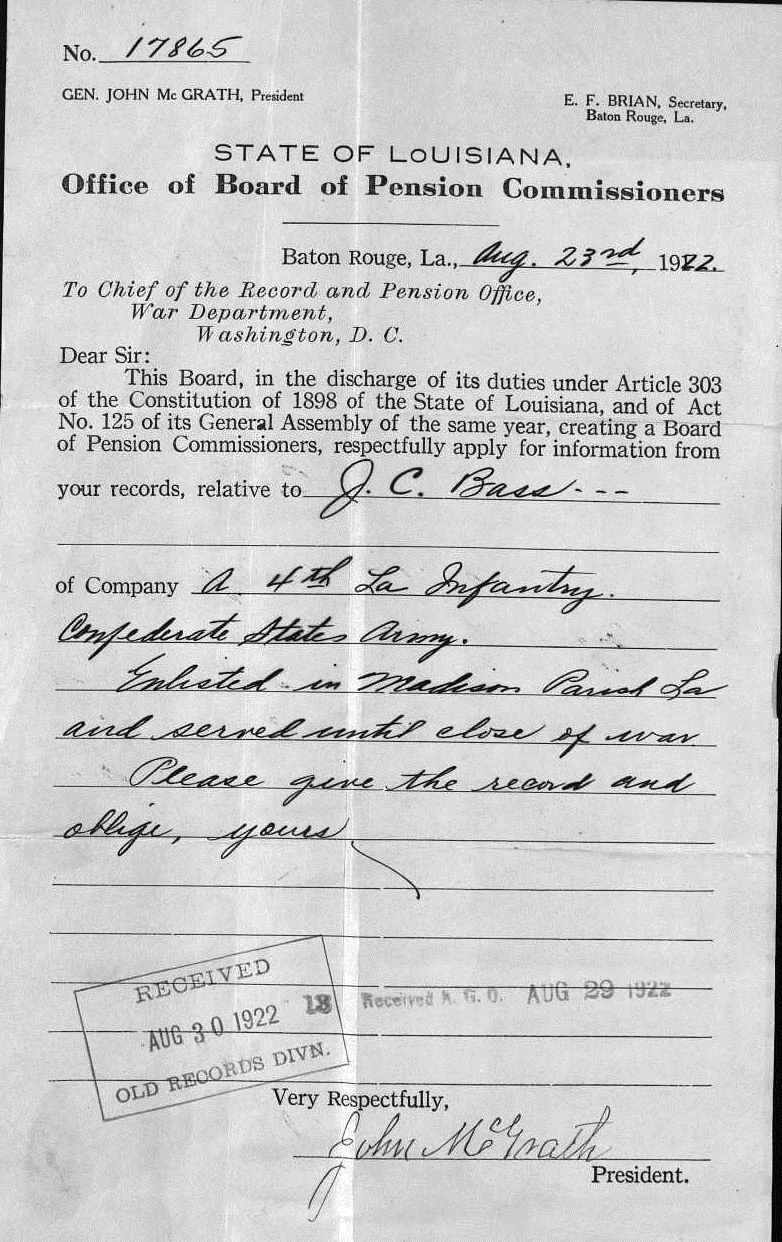 No. 17865
GEN. JOHN Mc GRATH, President
E. F. BRIAN, Secretary,
Baton Rouge, La.
STATE OF LOUISIANA,
Office of Board of Pension Commissioners
Baton Rouge, La., Aug. 23rd, 1922.
To Chief of the Record and Pension Office,
War Department,
Washington, D. C.
Dear Sir:
This Board, in the discharge of its duties under Article 303
of the Constitution of 1898 of the State of Louisiana, and of Act
No. 125 of its General Assembly of the same year, creating a Board
of Pension Commissioners, respectfully apply for information from
your records, relative to J. C. Bass - - -
of Company A 4th La Infantry.
Confederate States Army.
Enlisted in Madison Parish La
and served until close of war
Please give the record and
oblige, yours
RECEIVED
AUG 30 1922
OLD RECORDS DIVN.
18 Received A. G. O. AUG 29 1922
Very Respectfully,
John McGrath
President.